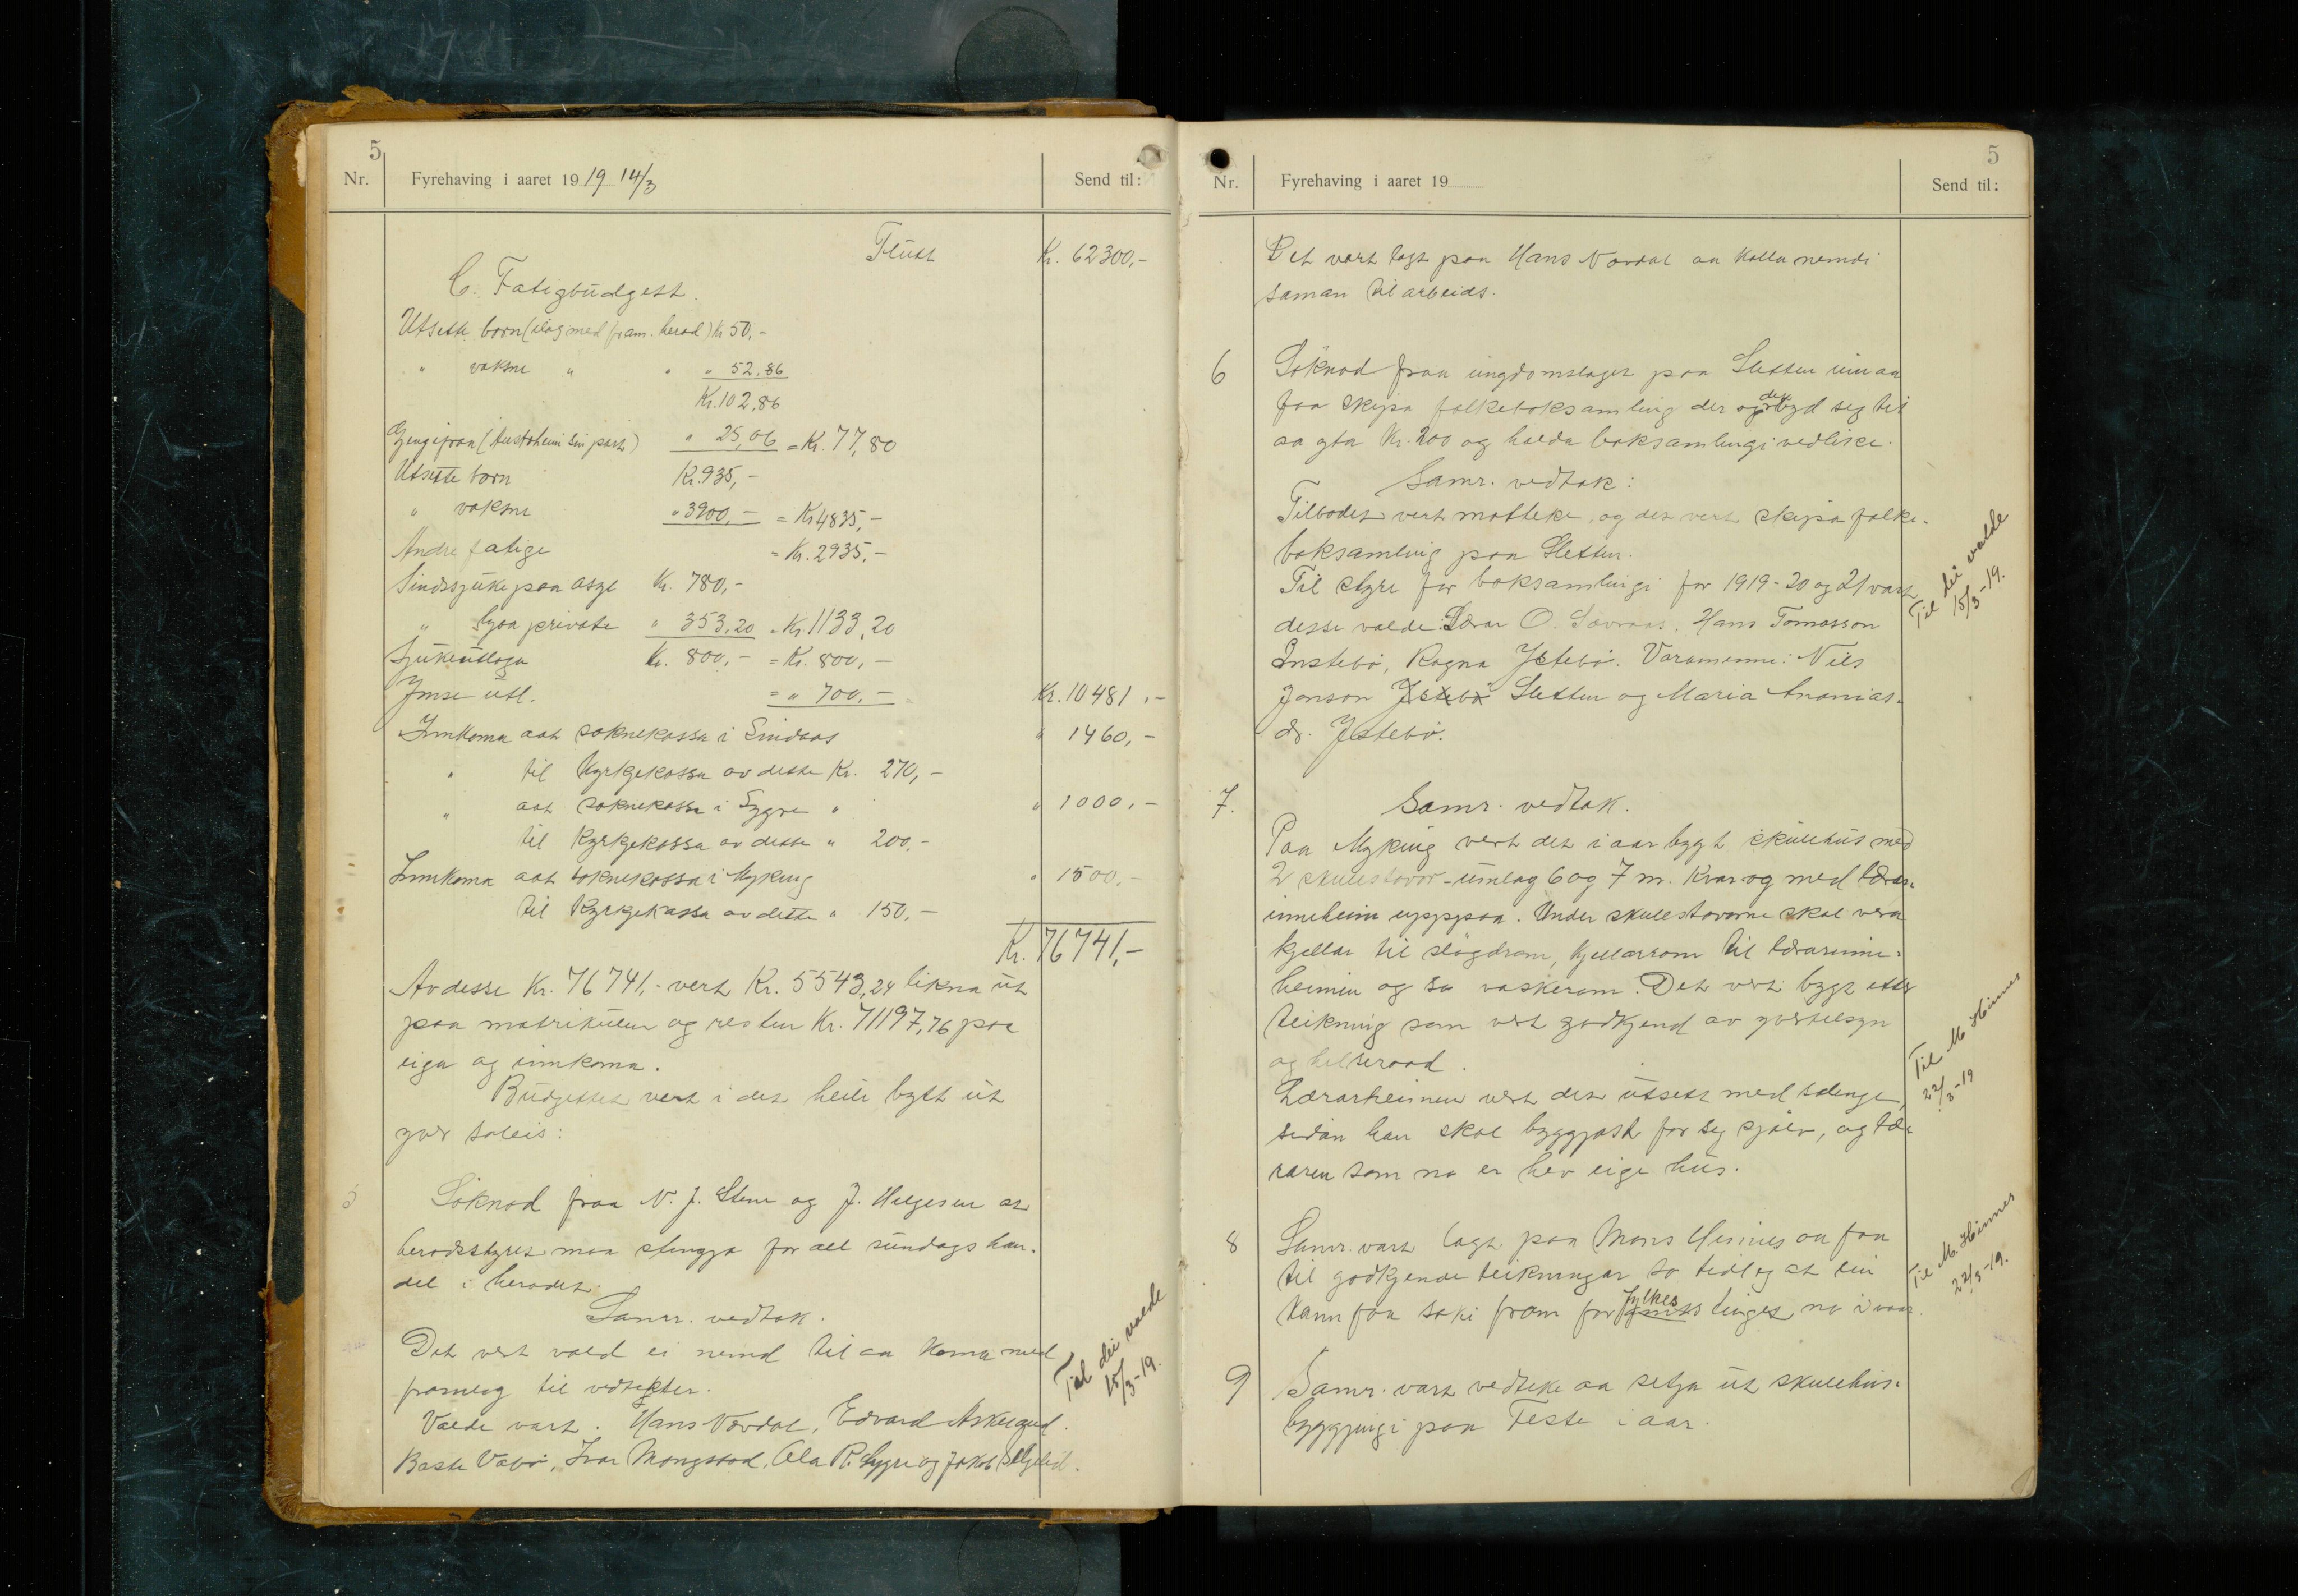 5
Nr.
Fyrehaving i aaret 1919 14/3
Send til:
Flutt Kr. 62300,-
C. Fatigbudgett.
Utsette born (ilag med fram. herad) Kr 50,-
" vaksne " " " 52,86
Kr. 102,86
Gjengifraa (Austrheim sin part) " 25,06 = Kr. 77,80
Utsette born Kr. 935,-
" vaksne " 3900,- = Kr 4835,-
Andre fatige = Kr. 2935,-
Sindssjuke paa asyl Kr. 780,-
" hjaa private " 353,20 = Kr 1133,20
Sjukeutlogu Kr. 800,- = Kr. 800,-
Ymse utl. = " 700,- = Kr. 10481,-
Innkoma aat soknekassa i Lindaas " 1460,-
" til Kyrkjekassa av desse Kr. 270,-
" aat soknekassa i Lygre " " 1000,-
til Kyrkjekassa av desse " 200,-
Innkoma aat soknekassa i Myking " 1500,-
til Kyrkjekassa av dette " 150,-
Kr. 76741,-
Av desse Kr. 76741,- vert Kr. 5543,24 likna ut
paa matrikulen og resten Kr. 71197,76 paa
eiga og innkoma.
Budgettet vert i det heile bytt ut
yver soleis:
5
Söknad fraa N. J. Stene og J. Helgesen at
heradsstyret maa stengja for all sundags han-
del i heradet.
Samr. vedtak.
Det vert vald ei nemd til aa koma med
framlag til vedtekter.
Valde vart: Hans Nævdal, Edvard Askeland.
Baste Vabö, Ivar Mongstad, Ola R. Lygre og Jakob Seljelid.
Til dei valde
15/3-19.
5
Nr.
Fyrehaving i aaret 19
Send til:
Det vart lagt paa Hans Nævdal aa kalla nemdi
saman til arbeids.
6
Söknad fraa ungdomslaget paa Sletten um aa
faa skipa folkeboksamling der og dei byd seg til
aa gjeva Kr. 200 og halda boksamlingi vedlike.
Samr. vedtak:
Tilbodet vert motteke, og det vert skipa folke-
boksamling paa Sletten.
Til styre for boksamlingi for 1919-20 og 21 vart
desse valde: Lærar O. Sævraas, Hans Tomasson
Instebö, Ragna Ystebö. Varamenner: Nils
Jonson Ystebö Sletten og Maria Ananias-
dr. Ystebö.
Til dei valde
15/3-19.
7.
Samr. vedtak.
Paa Myking vert det i aar bygt skulehus med
2 skulestovor - umlag 6 og 7 m. kvar og med lærar-
inneheim upppaa. Under skulestovorne skal vera
kjellar til slögdrom, kjellarrom til lærarinne-
heimen og so vaskerom. Det vert bygt etter
teikning som vert godkjend av yvertilsyn
og helseraad.
Lærarheimen vert det utsett med solenge,
sidan han skal byggjast for seg sjølv, og læ-
raren som no er hev eige hus.
Til M. Hinnes
22/3-19
8
Samr. vart lagt paa Mons Hinnes aa faa
til godkjende teikningar so tidleg at ein
kann faa saki fram for Fylkes amtstinget no i vaar.
Til M. Hinnes
22/3-19.
9
Samr. vart vedteke aa setja ut skulehus-
byggjingi paa Feste i aar.